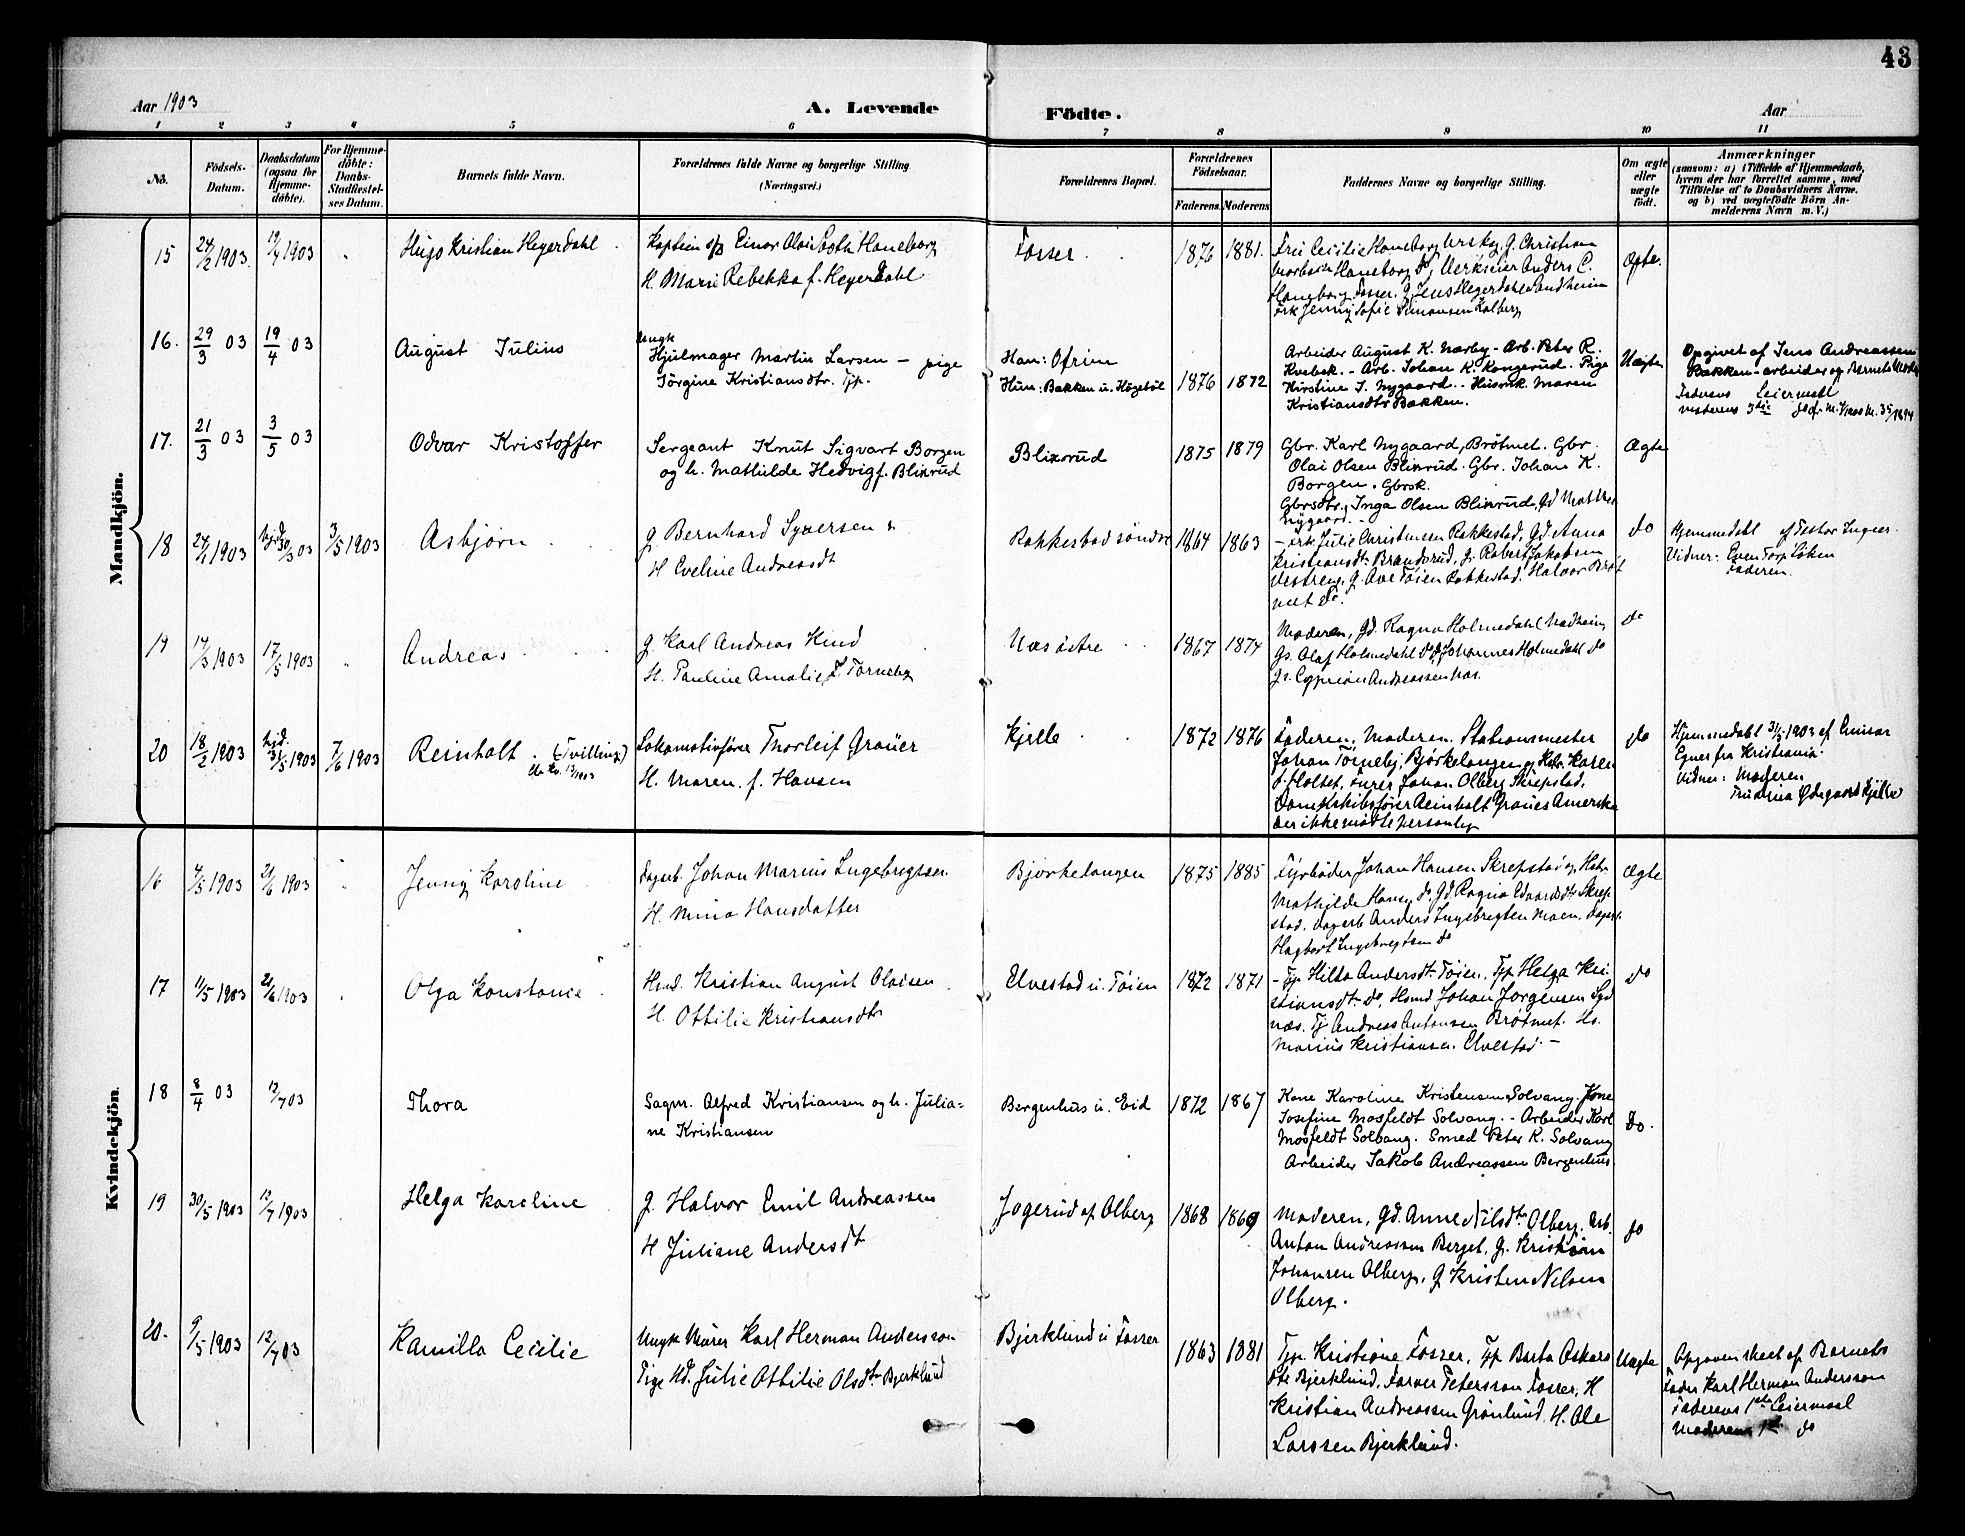 43
Aar 1903
A. Levende
Födte.
Aar
1 2 3 4 5 6 7 8 9 10 11
No.
Födsels-
Datum.
Daabsdatum
(ogsaa for
Hjemme-
döbte).
For Hjemme-
döbte:
Daabs-
Stadfæstel-
ses Datum.
Barnets fulde Navn.
Forældrenes fulde Navne og borgerlige Stilling.
(Næringsvei.)
Forældrenes Bopæl.
Forældrenes
Födselsaar.
Faderens. Moderens.
Faddernes Navne og borgerlige Stilling.
Om ægte
eller
uægte
født.
Anmærkninger
(saasom: a) i Tilfælde af Hjemmedaab,
hvem der har forrettet samme, med
Tilföielse af to Daabsvidners Navne,
og b) ved uægtefödte Börn An-
melderens Navn m. V.)
Mandkjön.
15 24/2 1903 19/4 1903 " Hugo Kristian Heyerdahl
Kaptein Einar Olai Haneborg
H. Marie Rebekka f. Heyerdahl
Fosser
1876 1881.
Haneborg G. Christian
Haneborg do, Verkseier Anders C.
Haneborg Fosser. G. Jens Heyerdahl
Jenny Sofie Simonsen Kolberg
Ægte.
16. 29/3 03 19/4 03
August Julius
Ungk
Hjulmager Martin Larsen — pige
Jörgine Kristiansdtr. Tjp.
Han: Ofrim
Hun: Bakken u. Högetöl
1876 1872
Arbeider August K. Nærby - Arb. Peter R.
Kvebek. - Arb. Johan K. Kongerud. Pige
Kirstine J. Nygaard. - Husmk. Maren
Kristiansdtr Bakken.
Uægte
Opgivet af Jens Andreassen
Bakken - arbeider og Barnets
Faderens Leiermaal
moderens 3die
17. 21/3 03 3/5 03
Odvar Kristoffer
Sergeant Knut Sigvart Borgen
og h. Mathilde Hedvig f. Blixrud
Blixrud
1875 1879
Gbr. Karl Nygaard, Brötmet. Gbr.
Olai Olsen Blixrud. Gbr. Johan K.
Borgen. Gbrsk.
Gbrsdtr. Inga Olsen Blixrud,
Nygaard. -
Ægte
18 24/4 1903 hjd. 30/3 03 3/5 1903 Asbjørn
G Bernhard Syversen
H Eveline Andreasdt
Rakkestad søndre
1864 1863
- Julie Christensen Rakkestad, Gd Anna
Kristiansdt. Brandsrud, G. Robert Jakobsen
Vestreng, G. Ave Tøien Rakkestad, Halvor Bröt
met do.
do
Hjemmedøbt af
Vidner: Even Torp Løken
Faderen.
19 14/3 1903 17/5 1903 " Andreas
G Karl Andreas Hind
H. Pauline Amalie f. Torneby
Næs østre
1867 1874
Moderen, Gd. Ragna Holmedahl Nadheim
Gs. Olaf Holmedahl do, G. Johannes Holmedahl do
Gs. Cyprian Andreassen Næs.
do
20 18/2 1903 hjd. 31/5 1903 7/6 1903
Reinholt (Tvilling)
Lokomotivfører Thorleif Grauer
H. Maren f. Hansen
Kjelle
1872 1876
Faderen, Moderen. Stationsmester
Johan Torneby, Bjørkelangen, Karen
Holtet, Furer Johan Olberg Skrepstad,
Dampskibsfører Reinholt Grauer Amerika
der ikke mødte personlig
do
Hjemmedøbt 31/5 1903 af Einar
Egner fra Kristiania.
Vidner: Moderen
Ødegaard Kjelle
Kvindekjön.
16 4/5 1903 21/6 1903 " Jenny Karoline
Dagarb. Johan Marius Ingebregtsen
H Mina Hansdatter
Bjørkelangen
1875 1885
Fyrbøder Johan Hansen Skrepstad og
Mathilde Hansen do, Gd. Ragna Edvardsdtr Skrep-
stad. Dagarb Anders Ingebregtsen Moen, Dagarb.
Hagbart Ingebregtsen do
Ægte
17 11/5 1903 21/6 1903 " Olga Konstance
Hsmd. Kristian August Olaisen
H. Ottilie Kristiansdtr
Elvestad u. Tøien
1872 1871
- Tjp Hilda Andersdt. Tøien, Tjp Helga Kri-
stiansdt. do, Hsmd Johan Jørgensen Syd
næs. Tj Andreas Antonsen Brøtmet. Hs.
Marius Kristiansen Elvestad. -
do
18 8/4 03 12/7 03
Thora
Sagm. Alfred Kristiansen og h. Julia=
ne Kristiansen
Bergenhus u. Eid
1872 1867
Kone Karoline Kristensen Solvang, Kone
Josefine Mosfeldt Solvang. - Arbeider Karl
Mosfeldt Solvang. Smed Peter K. Solvang
Arbeider Jakob Andreassen Bergenhus.
Do.
19 30/5 1903 12/7 1903
Helga Karoline
G. Halvor Emil Andreassen
H Juliane Andersdt
Jogerud af Olberg
1868 1869
Moderen, Gd. Anne Nilsdtr Olberg, Arb.
Anton Andreassen Berget, G. Kristian
Johansen Olberg, G Kristen Nelsen
Olberg.
do
20. 9/5 1903 12/7 03
Kamilla Cecilie
Ungk Murer Karl Herman Andersson
Pige Julie Ottilie Olsdtr Bjerklund
Bjerklund u Fosser
1863 1881
Tjp. Kristiane Fosser, Tjp Barta Oskars
dt Bjerklund, Farver Petersson Fosser, H
Kristian Andreassen Grønlund, H. Ole
Larssen Bjerklund.
Uægte
Opgaven skeet af Barnets
Fader Karl Herman Andersson
Faderens 1ste Leiermaal
Moderens 1ste do